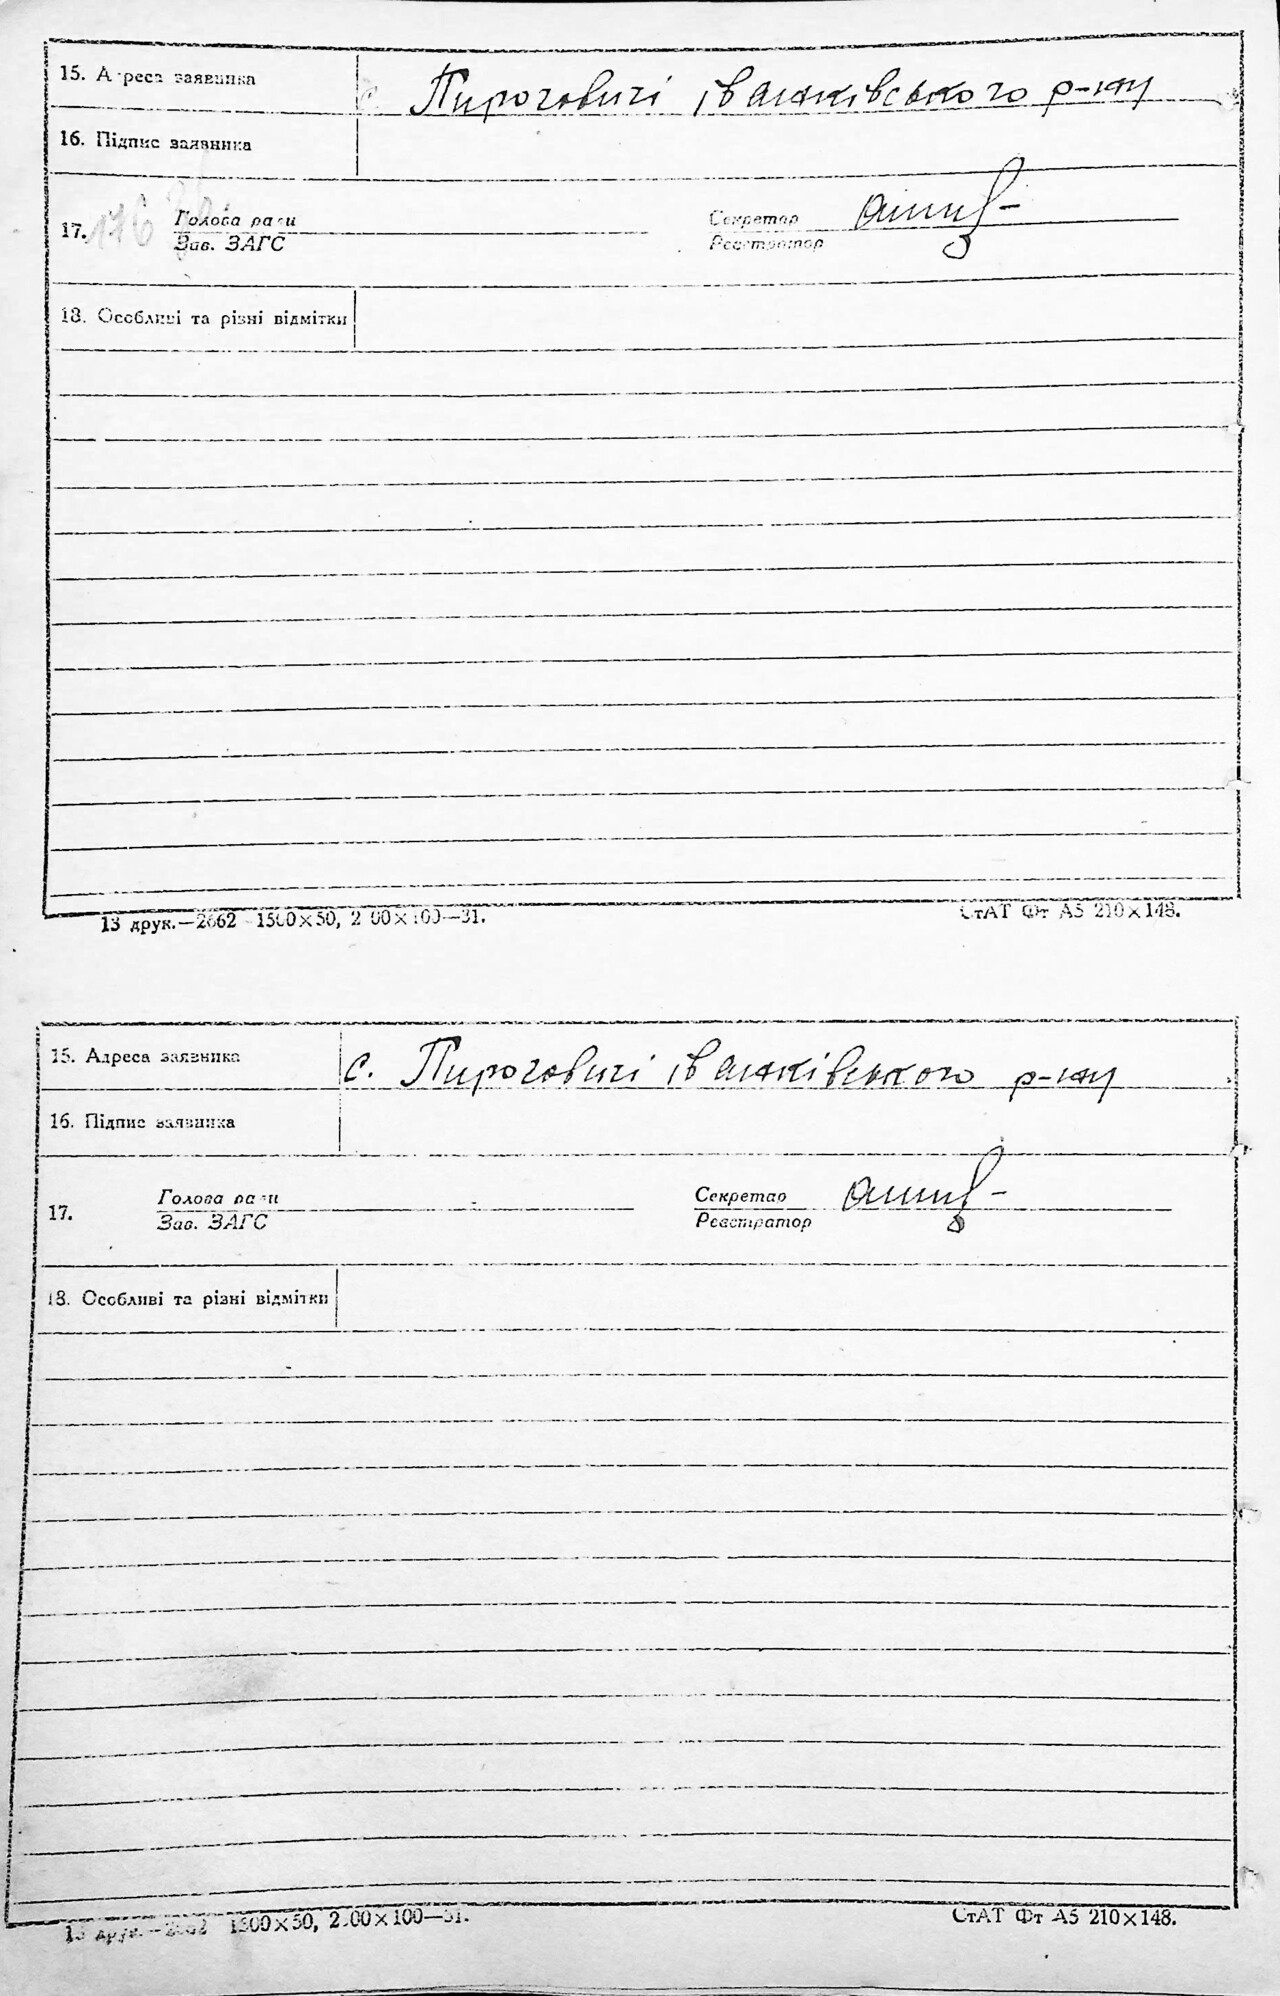 15. Адреса заявника
с. Пироговичі іванківського р-ну
16. Підпис заявника
17. Голова ради Секретар
Зав. ЗАГС Реєстратор
18. Особливі та різні відмітки
13 друк.—2662 1500×50, 2 00×100—31. СтАТ Фт А5 210×148.
15. Адреса заявника
с. Пироговичі іванківського р-ну
16. Підпис заявника
17. Голова ради Секретар
Зав. ЗАГС Реєстратор
18. Особливі та різні відмітки
13 друк.—2662 1500×50, 2.00×100—31. СтАТ Фт А5 210×148.